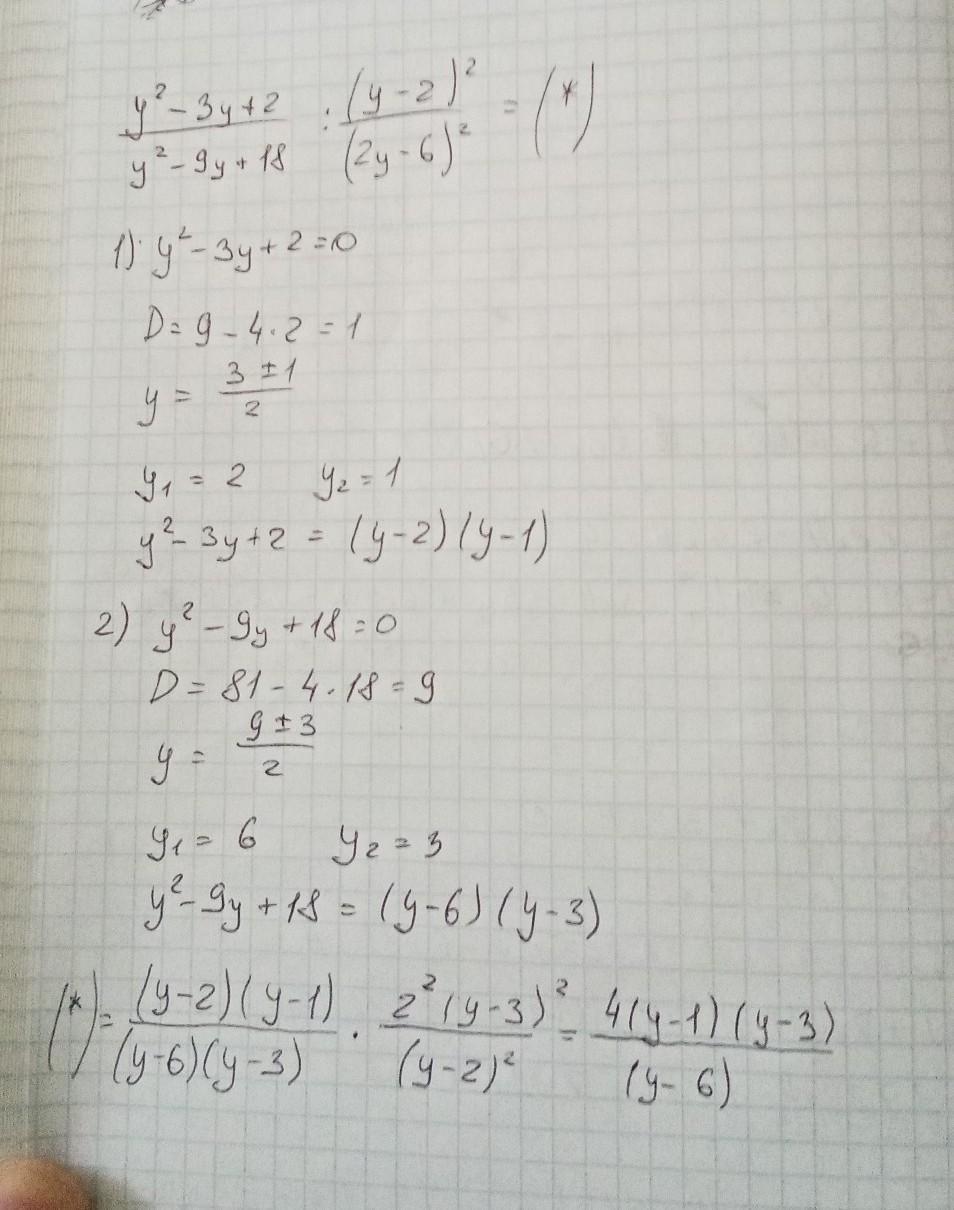 (y² - 3y + 2)/(y² - 9y + 18) : (y - 2)²/(2y - 6)² = (*)
1) y² - 3y + 2 = 0
D = 9 - 4 · 2 = 1
y = (3 ± 1)/2
y₁ = 2 y₂ = 1
y² - 3y + 2 = (y - 2)(y - 1)
2) y² - 9y + 18 = 0
D = 81 - 4 · 18 = 9
y = (9 ± 3)/2
y₁ = 6 y₂ = 3
y² - 9y + 18 = (y - 6)(y - 3)
(*) = ((y - 2)(y - 1))/((y - 6)(y - 3)) · (2²(y - 3)²)/((y - 2)²) = (4(y - 1)(y - 3))/((y - 6))